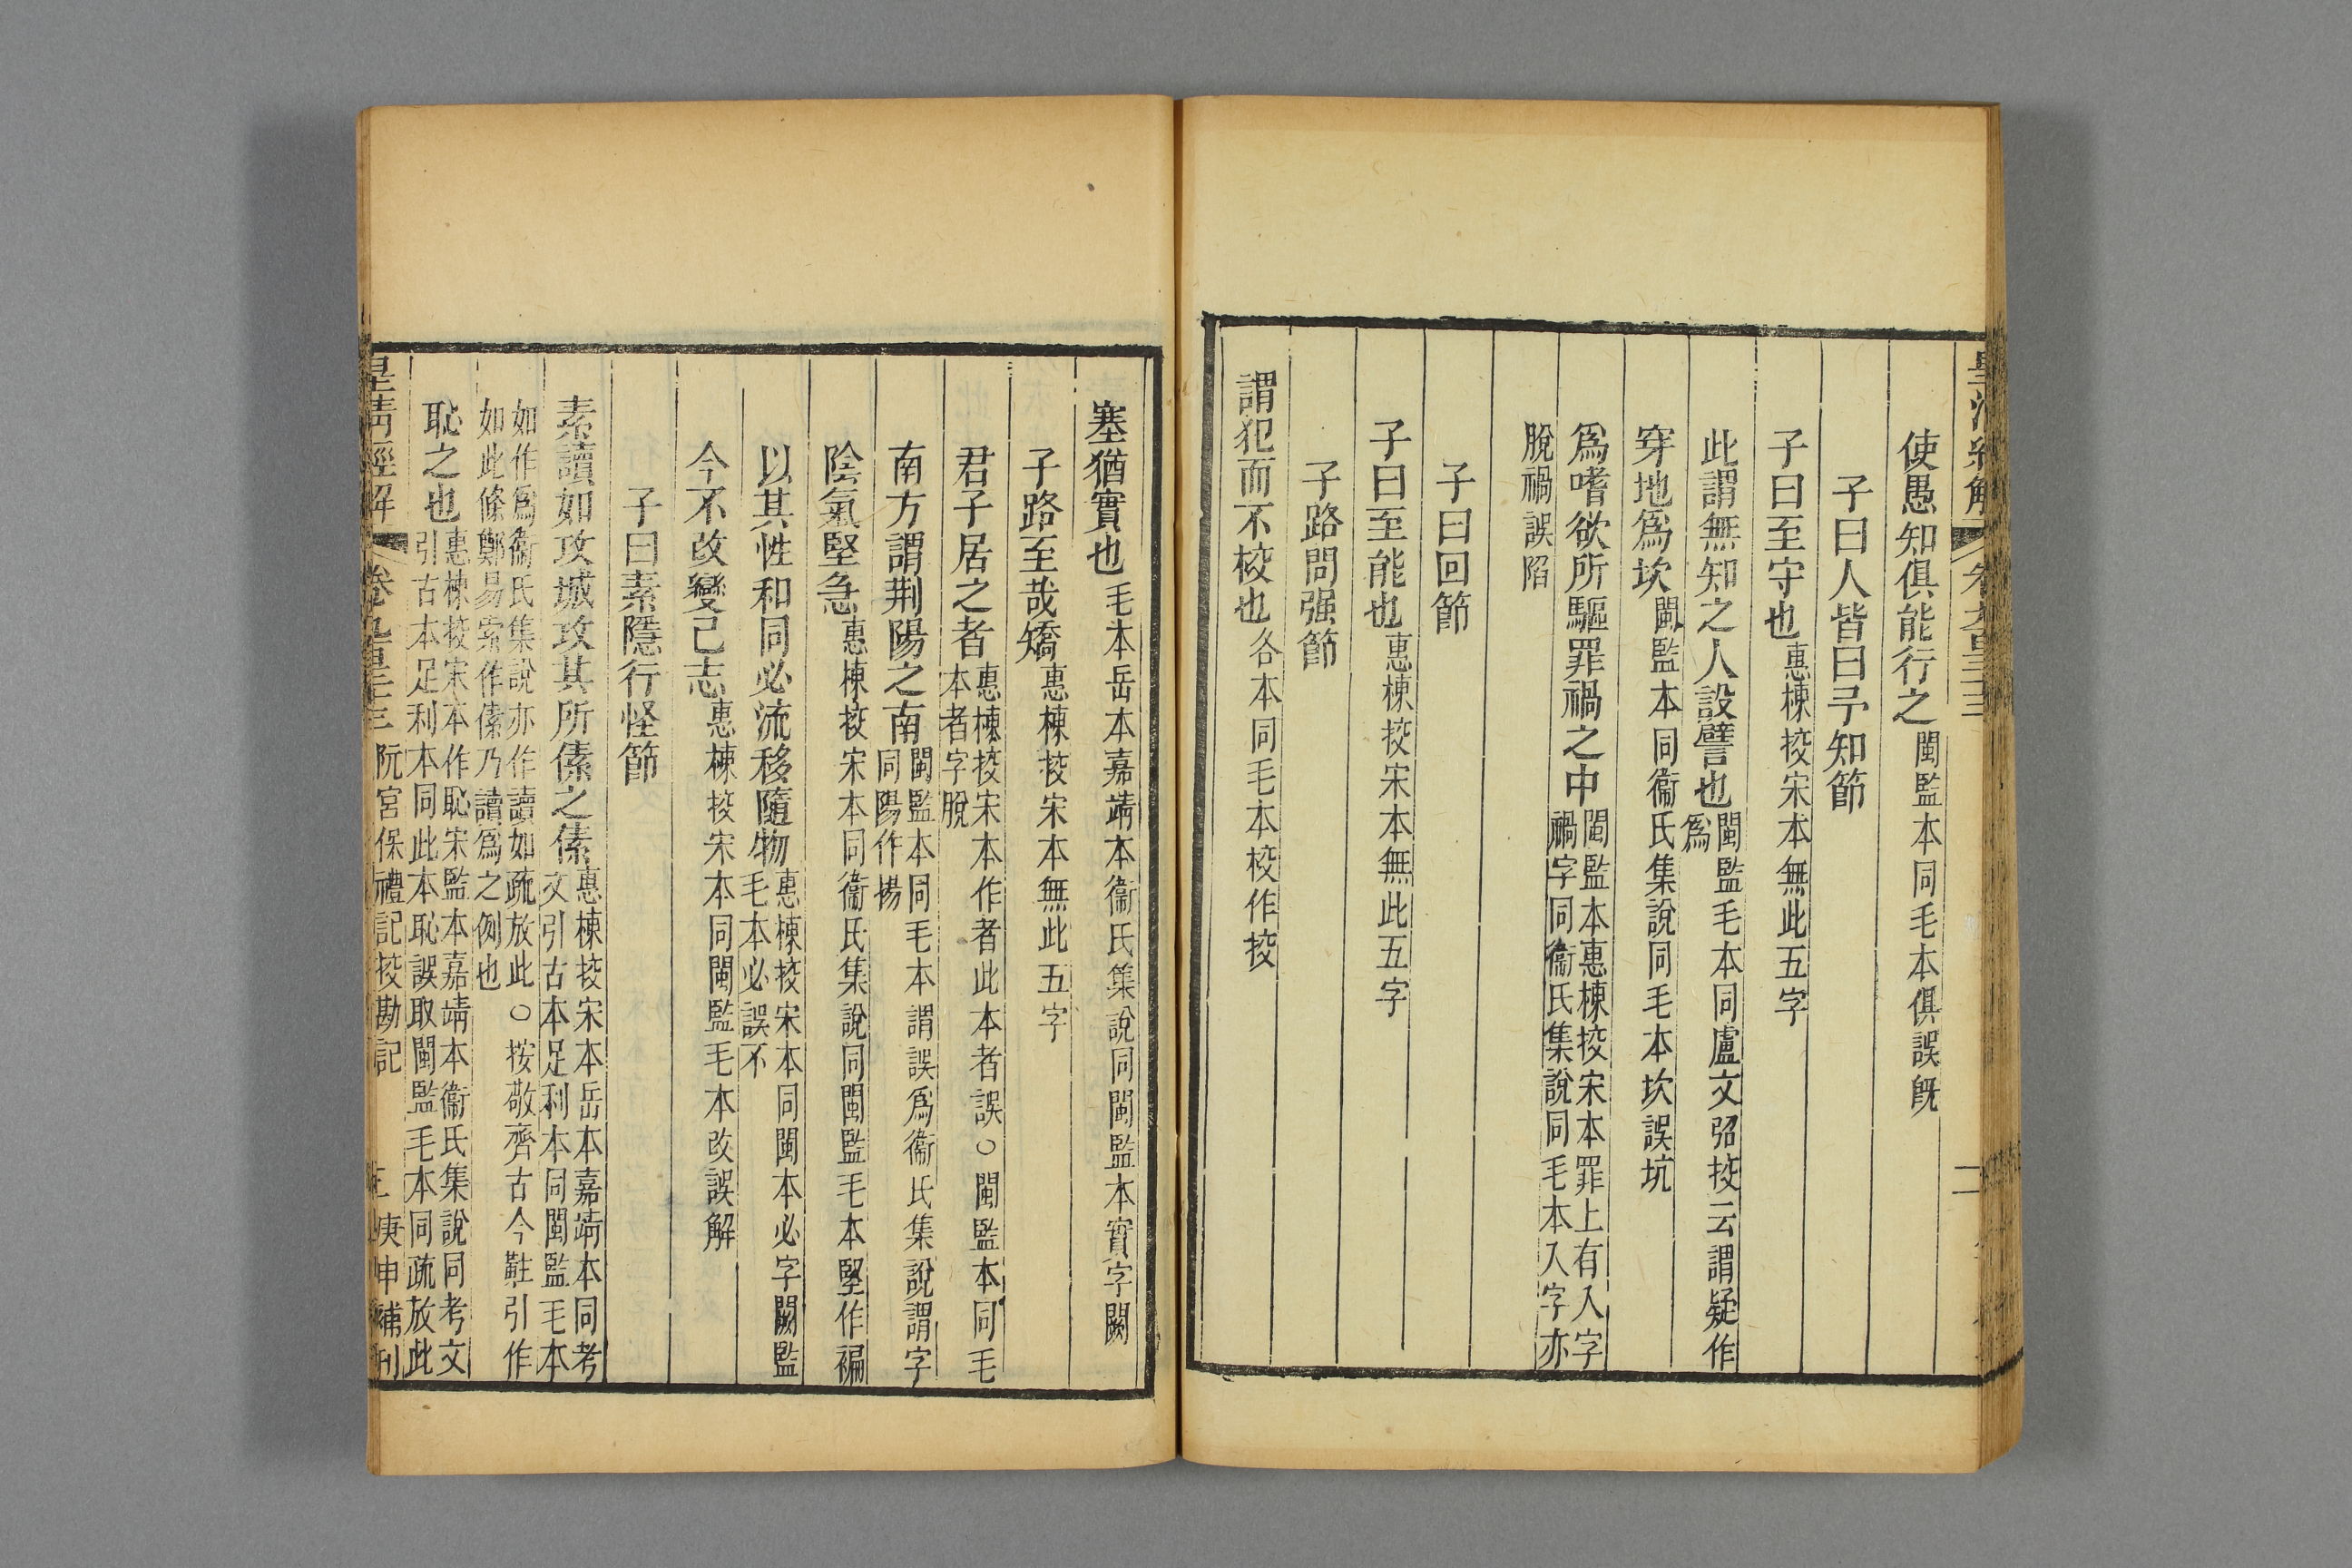 使愚知俱能行之閩監本同毛本俱誤旣
子曰人皆曰予知節
子曰至守也惠棟挍宋本無此五字
此謂無知之人設譬也閩監毛本同盧文弨挍云謂疑作爲
穿地爲坎閩監本同衞氏集說同毛本坎誤坑
爲嗜欲所驅罪禍之中閩監本惠棟挍宋本罪上有入字禍字同衞氏集說同毛本入字亦
脫禍誤陷
子曰回節
子曰至能也惠棟挍宋本無此五字
子路問强節
謂犯而不校也各本同毛本校作挍
塞猶實也毛本岳本嘉靖本衞氏集說同閩監本實字闕
子路至哉矯惠棟挍宋本無此五字
君子居之者惠棟挍宋本作者此本者誤○閩監本同毛本者字脫
南方謂荆陽之南閩監本同毛本謂誤爲衞氏集說謂字同陽作揚
陰氣堅急惠棟挍宋本同衞氏集說同閩監毛本堅作褊
以其性和同必流移隨物惠棟挍宋本同閩本必字闕監毛本必誤不
今不改變己志惠棟挍宋本同閩監毛本改誤解
子曰素隱行怪節
素讀如攻城攻其所傃之傃惠棟挍宋本岳本嘉靖本同考文引古本足利本同閩監毛本
如作爲衞氏集說亦作讀如疏放此○按敬齊古今黈引作
如此條鄭易索作傃乃讀爲之例也
恥之也惠棟挍宋本作恥宋監本嘉靖本衞氏集說同考文引古本足利本同此本恥誤取閩監毛本同疏放此
皇淸經解 卷九百三十三 阮宮保禮記挍勘記 庚申補刊